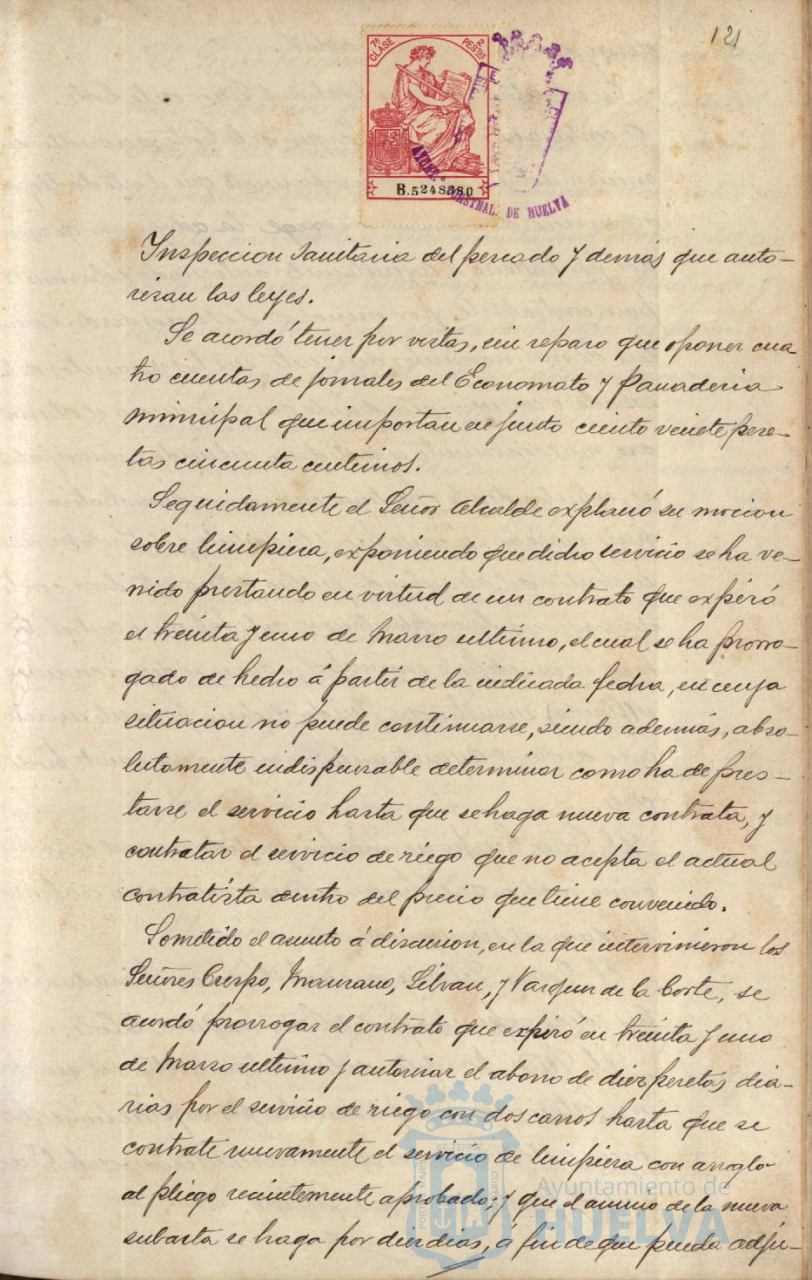 121
7ª CLASE
2 PESTAS
B.5248880
AYUNT.º
DE HUELVA
Inspeccion Sanitaria del pescado y demás que auto-
rizan las leyes.
Se acordó tener por vistas, sin reparo que oponer cua
tro cuentas de jornales del Economato y Panaderia
municipal que importan en junto ciento veinte pese-
tas cincuenta centimos.
Seguidamente el Señor Alcalde explanó su mocion
sobre limpieza, exponiendo que dicho servicio se ha ve-
nido prestando en virtud de un contrato que expiró
el treinta y uno de Marzo ultimo, el cual se ha prorro-
gado de hecho á partir de la indicada fecha, en cuya
situacion no puede continuarse, siendo además, abso-
lutamente indispensable determinar como ha de pres-
tarse el servicio hasta que se haga nueva contrata, y
contratar el servicio de riego que no acepta el actual
contratista dentro del precio que tiene convenido.
Sometido el asunto á discusion, en la que intervinieron los
Señores Crespo, Manzano, Silvan, y Vazquez de la Corte, se
acordó prorrogar el contrato que expiró en treinta y uno
de Marzo ultimo y autorizar el abono de diez pesetas dia-
rias por el servicio de riego con dos carros hasta que se
contrate nuevamente el servicio de limpieza con arreglo
al pliego recientemente aprobado; y que el anuncio de la nueva
subasta se haga por diez dias, á fin de que pueda adju-
Ayuntamiento de
HUELVA